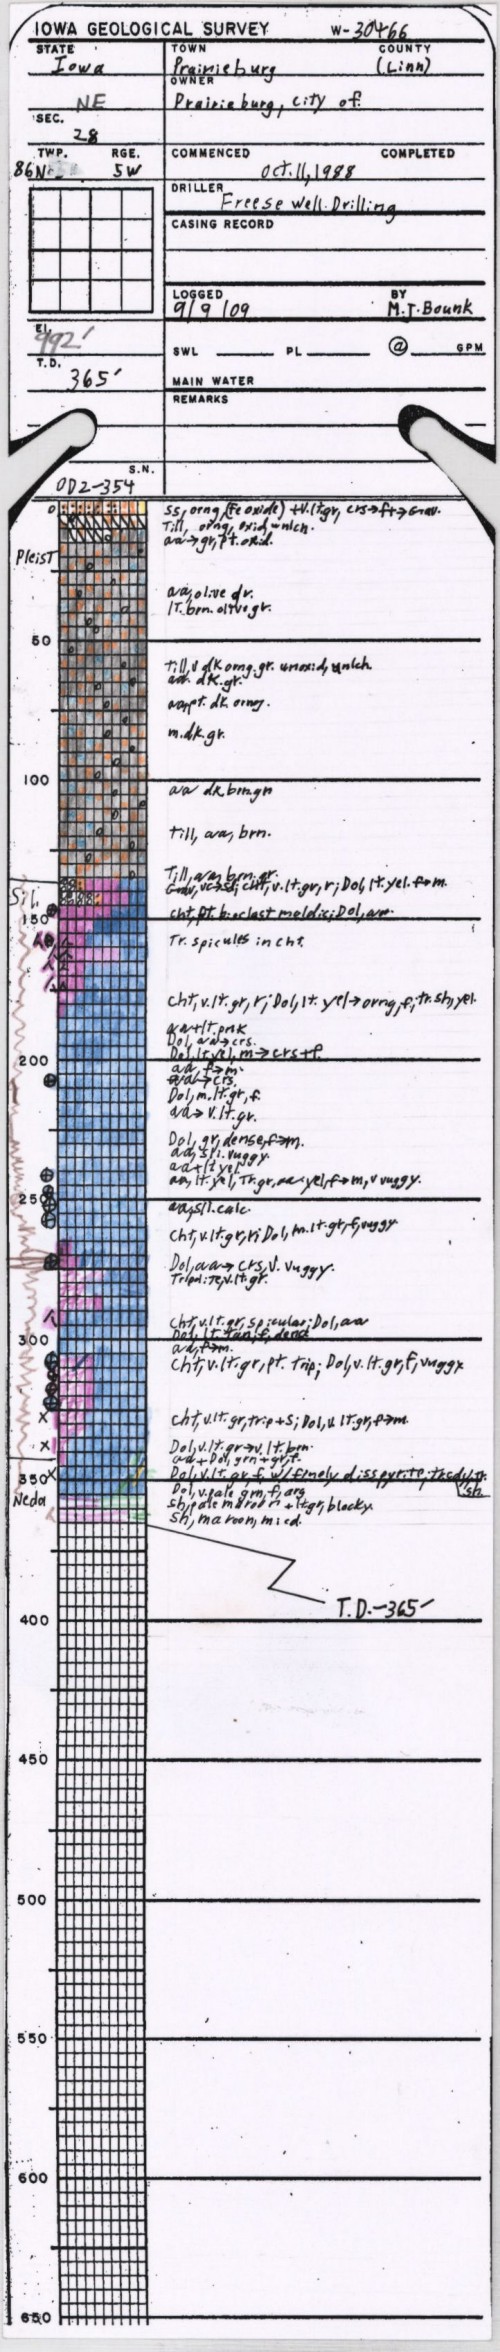 IOWA GEOLOGICAL SURVEY W-30466
STATE TOWN COUNTY
Iowa Prairieburg (Linn)
OWNER
NE Prairieburg, city of
SEC.
28
TWP. RGE. COMMENCED COMPLETED
86N 5W Oct. 11, 1988
DRILLER
Freese Well Drilling
CASING RECORD
LOGGED BY
9/9/09 M.J. Bounk
El.
992'
SWL PL @ GPM
T.D.
365'
MAIN WATER
REMARKS
S.N.
OD2-354
0 ss, orng (Fe oxide) + v.lt.gr, crs→f+→Grav.
Till, orng, oxid, unlch.
aa→gr, pt. oxid.
Pleist
aa, olive dr.
lt. brn. olive gr.
50
Till, v dk orng. gr. unoxid, unlch
aa dk. gr.
aa, pt. dk. orng.
m. dk. gr.
100
aa dk. brn. gn
Till, aa, brn.
Till, aa, brn. gr.
Sil. Grav, vc→s; cht, v.lt.gr, r; Dol, lt. yel. f→m.
150 cht, pt. bioclast moldic; Dol, aa
Tr. spicules in cht.
Cht, v.lt.gr, r; Dol, lt. yel→orng, f; tr. sh, yel.
aa+lt. pnk
Dol, aa→crs.
200 Dol, lt. yel, m→crs+f
aa, f→m.
aa→crs.
Dol, m. lt. gr, f.
aa→v. lt. gr.
Dol, gr, dense, f→m.
aa, sli. vuggy.
aa+lt yel
aa, lt. yel, Tr. gr, aa yel, f→m, v vuggy.
250 aa, sli. calc.
Cht, v.lt.gr, r; Dol, m. lt. gr, f, vuggy
Dol, aa→crs, v. vuggy.
Tripolite, v.lt.gr.
Cht, v.lt.gr, spicular; Dol, aa
300 Dol, lt. tan, f, dend
aa, f→m.
Cht, v.lt.gr, pt. trip; Dol, v.lt.gr, f, vuggy
Cht, v.lt.gr, trip+s; Dol, v. lt.gr, f→m.
Dol, v.lt.gr→v. lt. brn.
aa+Dol, grn+gr, f.
350 Dol, v.lt.gr, f, w/ finely diss pyrite, tr sdy, tr. sh.
Neda Dol, v. pale grn, f, arg
Sh, pale maroon + lt gr, blocky.
Sh, maroon, micd.
T.D.-365'
400
450
500
550
600
650